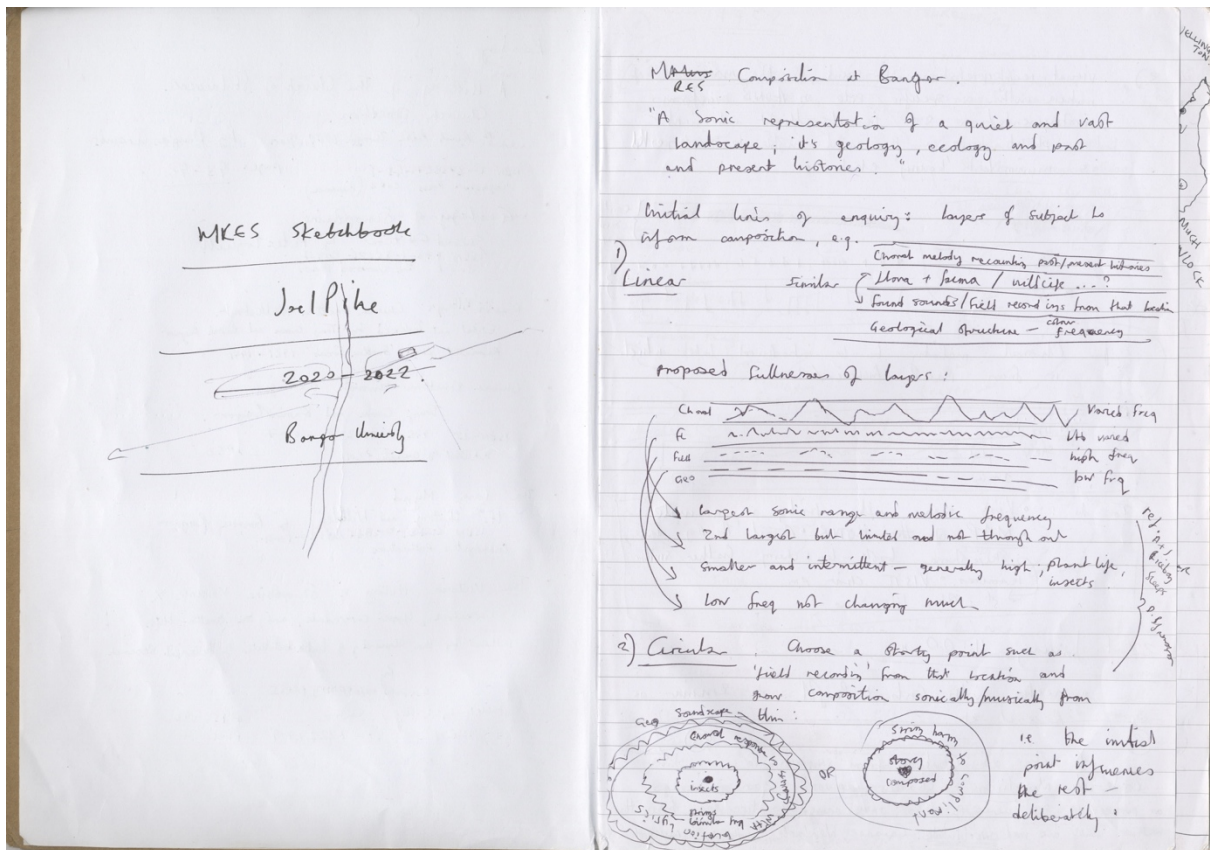 MRES Sketchbook
Joel Pike
2020 – 2022.
Bangor University
RES Composition at Bangor.
"A Sonic representation of a quiet and vast
landscape; it's geology, ecology and past
and present histories."
Initial lines of enquiry: layers of subject to
inform composition, e.g.
1)
Linear
Choral melody recounting past/present histories
Similar
flora + fauna / wildlife ...?
found sounds/field recordings from that location
Geological structure – frequency
Proposed fullnesses of layers:
Choral Varied freq
less varied
Field high freq
Geo low frq
Largest sonic range and melodic frequency
2nd largest but limited and not through out
Smaller and intermittent – generally high, plant life,
insects.
Low freq not changing much
2) Circular. Choose a starting point such as
'field recording' from that location and
grow composition sonically/musically from
this:
Geo Soundscape
Choral response to
insects
location lyrics with
OR
String harm to compliment
composed
i.e the initial
point influences
the rest –
deliberately.
WELLINGTON
MUCH
WENLOCK